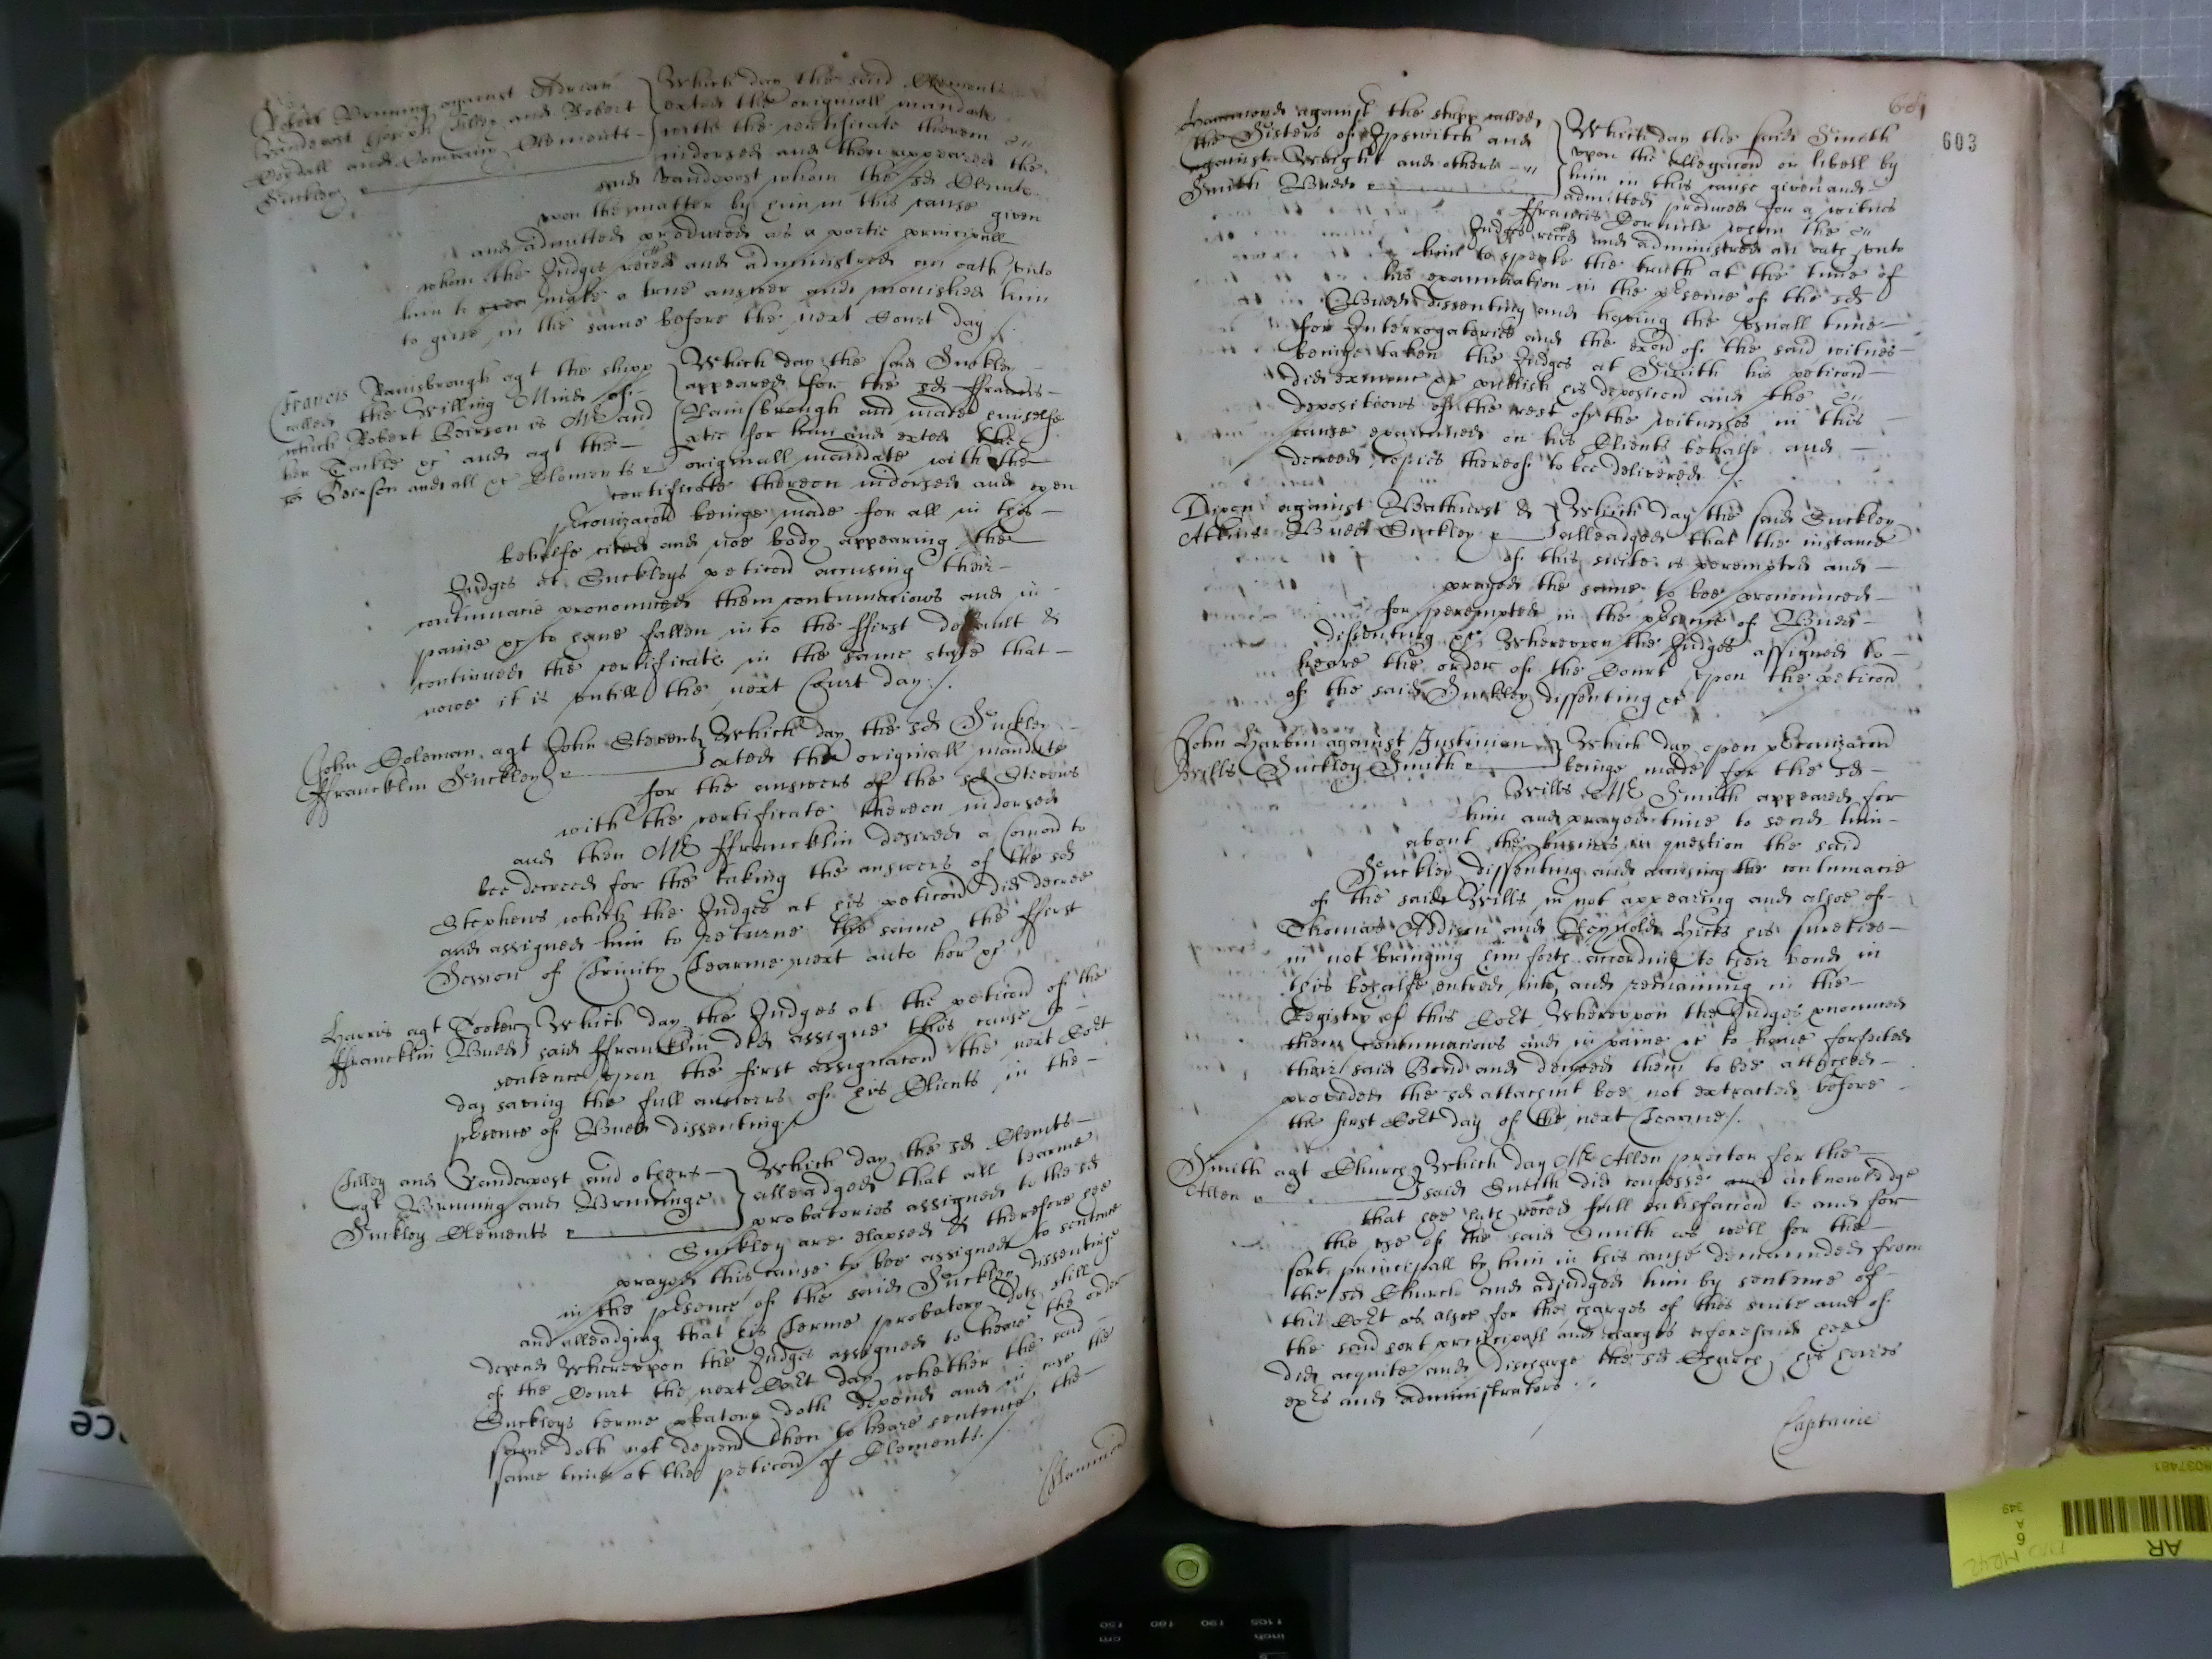 Robert Bruning against Adrian
Vandepost Joseph Tilley and Robert
and Company Clements
Suckley
Which day the said Clements
exted the originall mandate
with the certificate thereon
indorsed and then appeared the
said Vandepost whom the sd Clemts
upon the matter by him in this cause given
and admitted produced as a partie principall
whom the Judges reced and administred an oath unto
him to make a true answer and monished him
to give in the same before the next Court day /.
Francis Rainsbrough agt the shipp
called the Willing Minde of
which Robert Peirson is Mr and
her Tackle &c and agt the
sd Peirson and all &c Clements
Which day the said Suckley
appeared for the sd Francis
Rainsbrough and made himselfe
ptie for him and exted the
originall mandate with the
certificate thereon indorsed and upon
pconizacon beinge made for all in this
behalfe cited and noe body appearing the
Judges at Suckleys peticon accusing their
contumacie pronounced them contumacious and in
paine &c to have fallen into the ffirst default &
continued the certificate in the same state that
nowe it is untill the next Court day /.
John Coleman agt John Stevens
ffrancklin Suckley
Which day the sd Suckley
exted the originall mandate
for the answers of the sd Stevens
with the certificate thereon indorsed
and then Mr ffrancklin desired a Comon to
bee decreed for the taking the answers of the sd
Stephens which the Judges at his peticon did decree
and assigned him to returne the same the ffirst
Session of Trinity Tearme next ante hor &c
Harris agt Tooker
ffrancklin Budd
Which day the Judges at the peticon of the
said ffrancklin did assigne this cause to
sentence upon the first assignacon the next Cort
day saving the full answers of his Clients in the
psence of Budd dissenting /.
Tilley and Vanderpost and others
agt Bruning and Bruninge
Suckley Clements
Which day the sd Clemts
alleadged that all tearme
probatories assigned to the sd
Suckley are elapsed & therefore hee
prayed this cause to bee assigned to sentence
in the psence of the said Suckley dissentinge
and alleadging that his Terme probatory doth still
depend Whereupon the Judges assigned to heare the order
of the Court the next Cort day whether the said
Suckleys terme pbatory doth depend and in case the
same doth not depend then to heare sentence the
same time at the peticon of Clements /.
Hammond
Hammond against the shipp called
the Sisters of Ipswitch and
against Wright and others
Smith Budd
603
Which day the said Smith
upon the Allegacon or libell by
him in this cause given and
admitted produced for a witnes
ffrancis whom the
Judge reced and administred an oath unto
him to speake the truth at the time of
his examination in the psence of the sd
Budd dissenting and having the usuall time
for Interrogatories and the exon of the said witnes
beinge taken the Judges at Smith his peticon
did decree &c publish his deposicon and the
depositions of the rest of the witnesses in this
cause examined on his Clients behalfe and
decreed copies thereof to bee delivered /.
Dixon against Bathurst &
Atkins Budd Suckley
Which day the said Suckley
alleadged that the instance
of this suite is perempted and
prayed the same to bee pronounced
for perempted in the psence of Budd
dissenting &c Whereupon the Judges assigned to
heare the order of the Court upon the peticon
of the said Suckley dissenting &c
John Harbin against Justinian
Wills Suckley Smith
Which day upon pconizacon
beinge made for the sd
Wills Mr Smith appeared for
him and prayed time to send him
about the busines in question the said
Suckley dissenting and accusing the contumacie
of the said Wills in not appearing and alsoe of
Thomas Addison and Reynold Hicks his sureties
in not bringing him forth according to their bond in
this behalfe entred into and remaining in the
Registry of this Cort Whereupon the Judges pnounced
them contumacious and in paine &c to have forfeited
their said Bond and decreed them to bee attached
provided the sd attachmt bee not extracted before
the first Cort day of the next Tearme /.
Smith agt Church
Allen
Which day Mr Allen proctor for the
said Smith did confesse and acknowledge
that hee hath reced full satisfaction to and for
the use of the said Smith as well for the
sort principall by him in this cause demaunded from
the sd Church and adjudged him by sentence of
this Cort as alsoe for the charges of this suite and of
the said sort principall and charges aforesaid hee
did acquite and discharge the sd Church his heires
exrs and administrators /.
Captaine